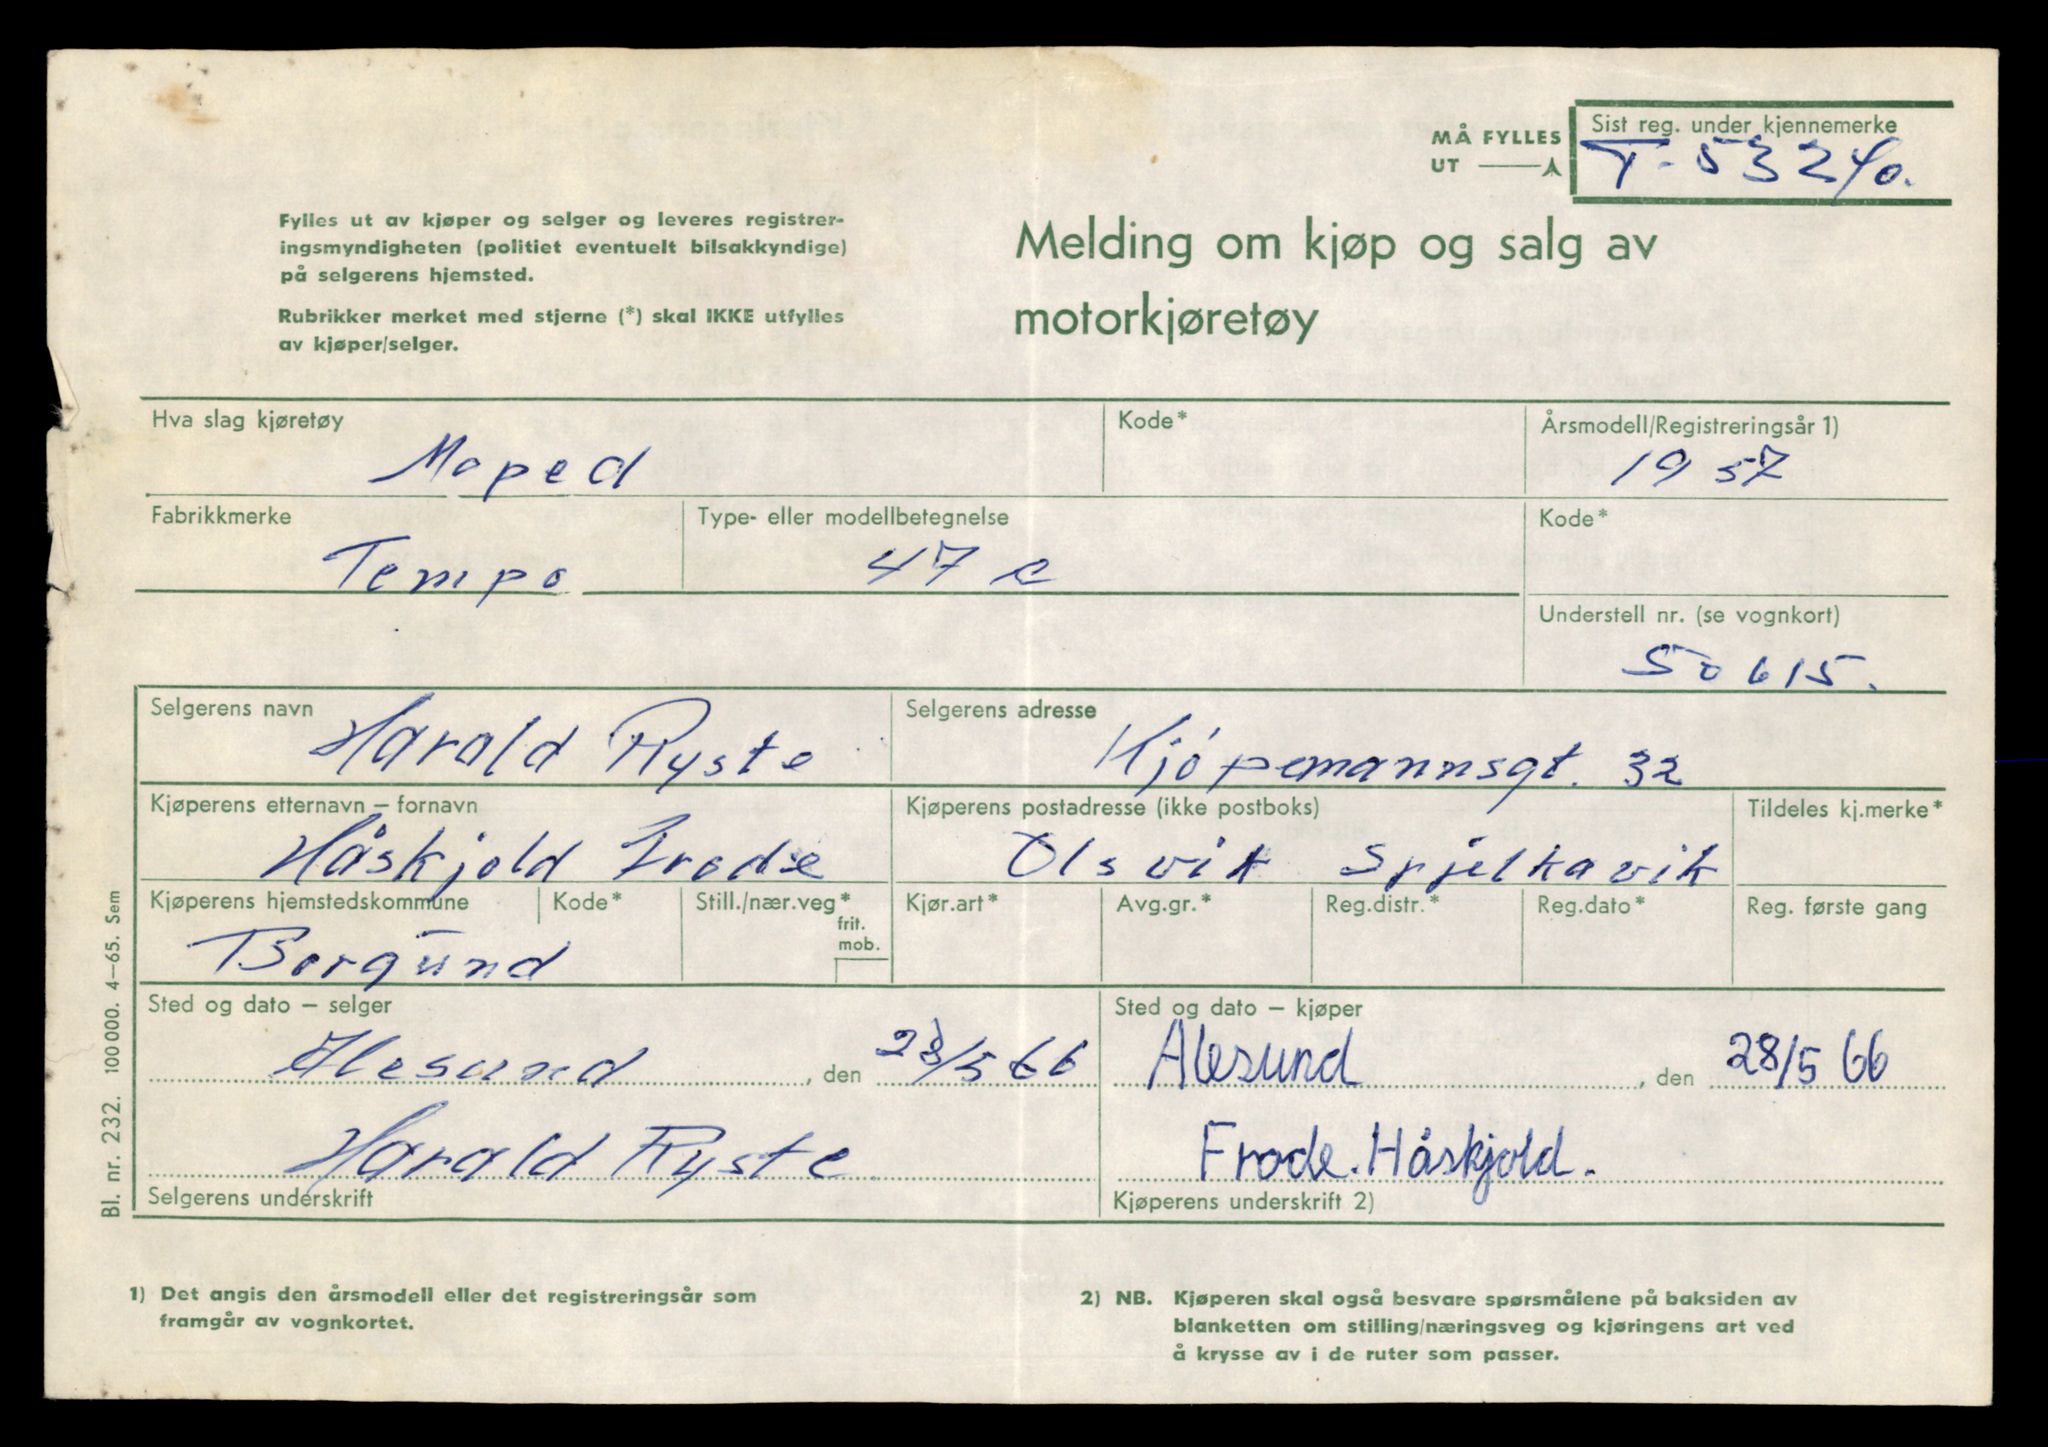 MÅ FYLLES
UT
Sist reg. under kjennemerke
T-53240.
Fylles ut av kjøper og selger og leveres registrer-
ingsmyndigheten (politiet eventuelt bilsakkyndige)
på selgerens hjemsted.
Rubrikker merket med stjerne (*) skal IKKE utfylles
av kjøper/selger.
Melding om kjøp og salg av
motorkjøretøy
Hva slag kjøretøy
Moped
Kode*
Årsmodell/Registreringsår 1)
1957
Fabrikkmerke
Tempo
Type- eller modellbetegnelse
47 c
Kode*
Understell nr. (se vognkort)
50615.
Selgerens navn
Harald Ryste
Selgerens adresse
Kjøpemannsgt. 32
Kjøperens etternavn – fornavn
Håskjold Frode
Kjøperens postadresse (ikke postboks)
Olsvik Spjelkavik
Tildeles kj.merke*
Kjøperens hjemstedskommune
Borgund
Kode*
Still./nær.veg*
frit.
mob.
Kjør.art*
Avg.gr.*
Reg.distr.*
Reg.dato*
Reg. første gang
Sted og dato – selger
Alesund, den 28/5 66
Harald Ryste
Selgerens underskrift
Sted og dato – kjøper
Alesund, den 28/5 66
Frode. Håskjold.
Kjøperens underskrift 2)
Bl. nr. 232. 100 000. 4—65. Sem
1) Det angis den årsmodell eller det registreringsår som
framgår av vognkortet.
2) NB. Kjøperen skal også besvare spørsmålene på baksiden av
blanketten om stilling/næringsveg og kjøringens art ved
å krysse av i de ruter som passer.